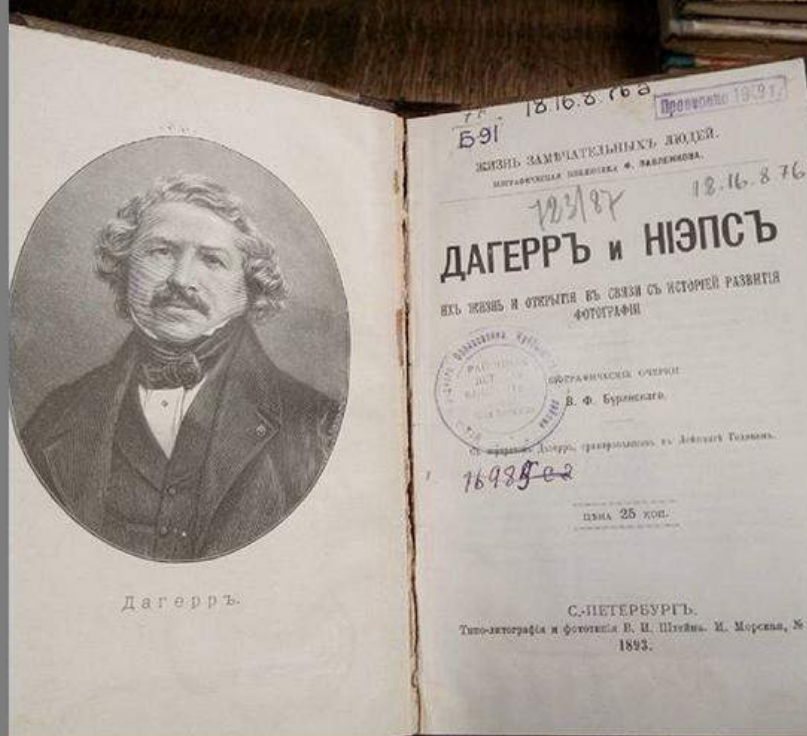 Дагерръ.
Б91
18.16.8.76а
Проверено 1949 г.
ЖИЗНЬ ЗАМѢЧАТЕЛЬНЫХЪ ЛЮДЕЙ.
БІОГРАФИЧЕСКАЯ БИБЛІОТЕКА Ф. ПАВЛЕНКОВА.
723/87
18.16.8 76
ДАГЕРРЪ и НІЭПСЪ
ИХЪ ЖИЗНЬ И ОТКРЫТІЯ ВЪ СВЯЗИ СЪ ИСТОРІЕЙ РАЗВИТІЯ
ФОТОГРАФІИ
БІОГРАФИЧЕСКІЕ ОЧЕРКИ
В. Ф. Буринскаго.
Съ портретомъ Дагерра, гравированнымъ въ Лейпцигѣ Геданомъ.
ЦѢНА 25 КОП.
С.-ПЕТЕРБУРГЪ.
Типо-литографія и фототипія В. И. Штейна. М. Морская, №
1893.